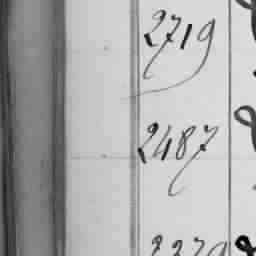 2719
2487